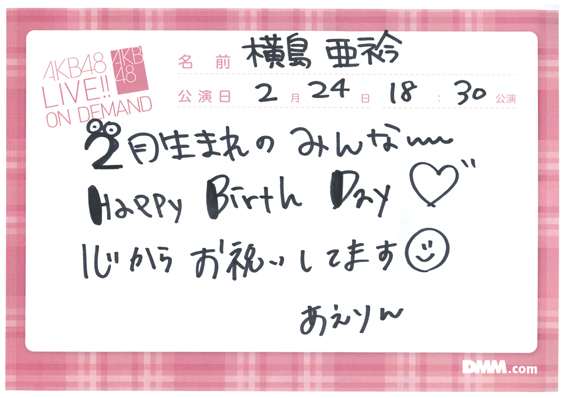 AKB48
LIVE!!
ON DEMAND
AKB
48
名前 横島 亜衿
公演日 2月24日 18:30公演
2月生まれのみんな〜
Happy Birth Day♡
心からお祝いしてます☺
あえりん
DMM.com